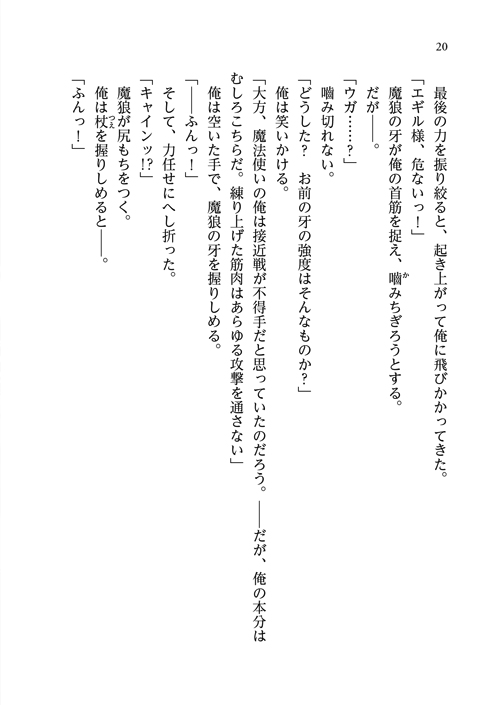 20
最後の力を振り絞ると、起き上がって俺に飛びかかってきた。
「エギル様、危ないっ！」
魔狼の牙が俺の首筋を捉え、嚙みちぎろうとする。
だが――。
「ウガ……？」
嚙み切れない。
「どうした？　お前の牙の強度はそんなものか？」
俺は笑いかける。
「大方、魔法使いの俺は接近戦が不得手だと思っていたのだろう。――だが、俺の本分は
むしろこちらだ。練り上げた筋肉はあらゆる攻撃を通さない」
俺は空いた手で、魔狼の牙を握りしめる。
「――ふんっ！」
そして、力任せにへし折った。
「キャインッ!?」
魔狼が尻もちをつく。
俺は杖を握りしめると――。
「ふんっ！」